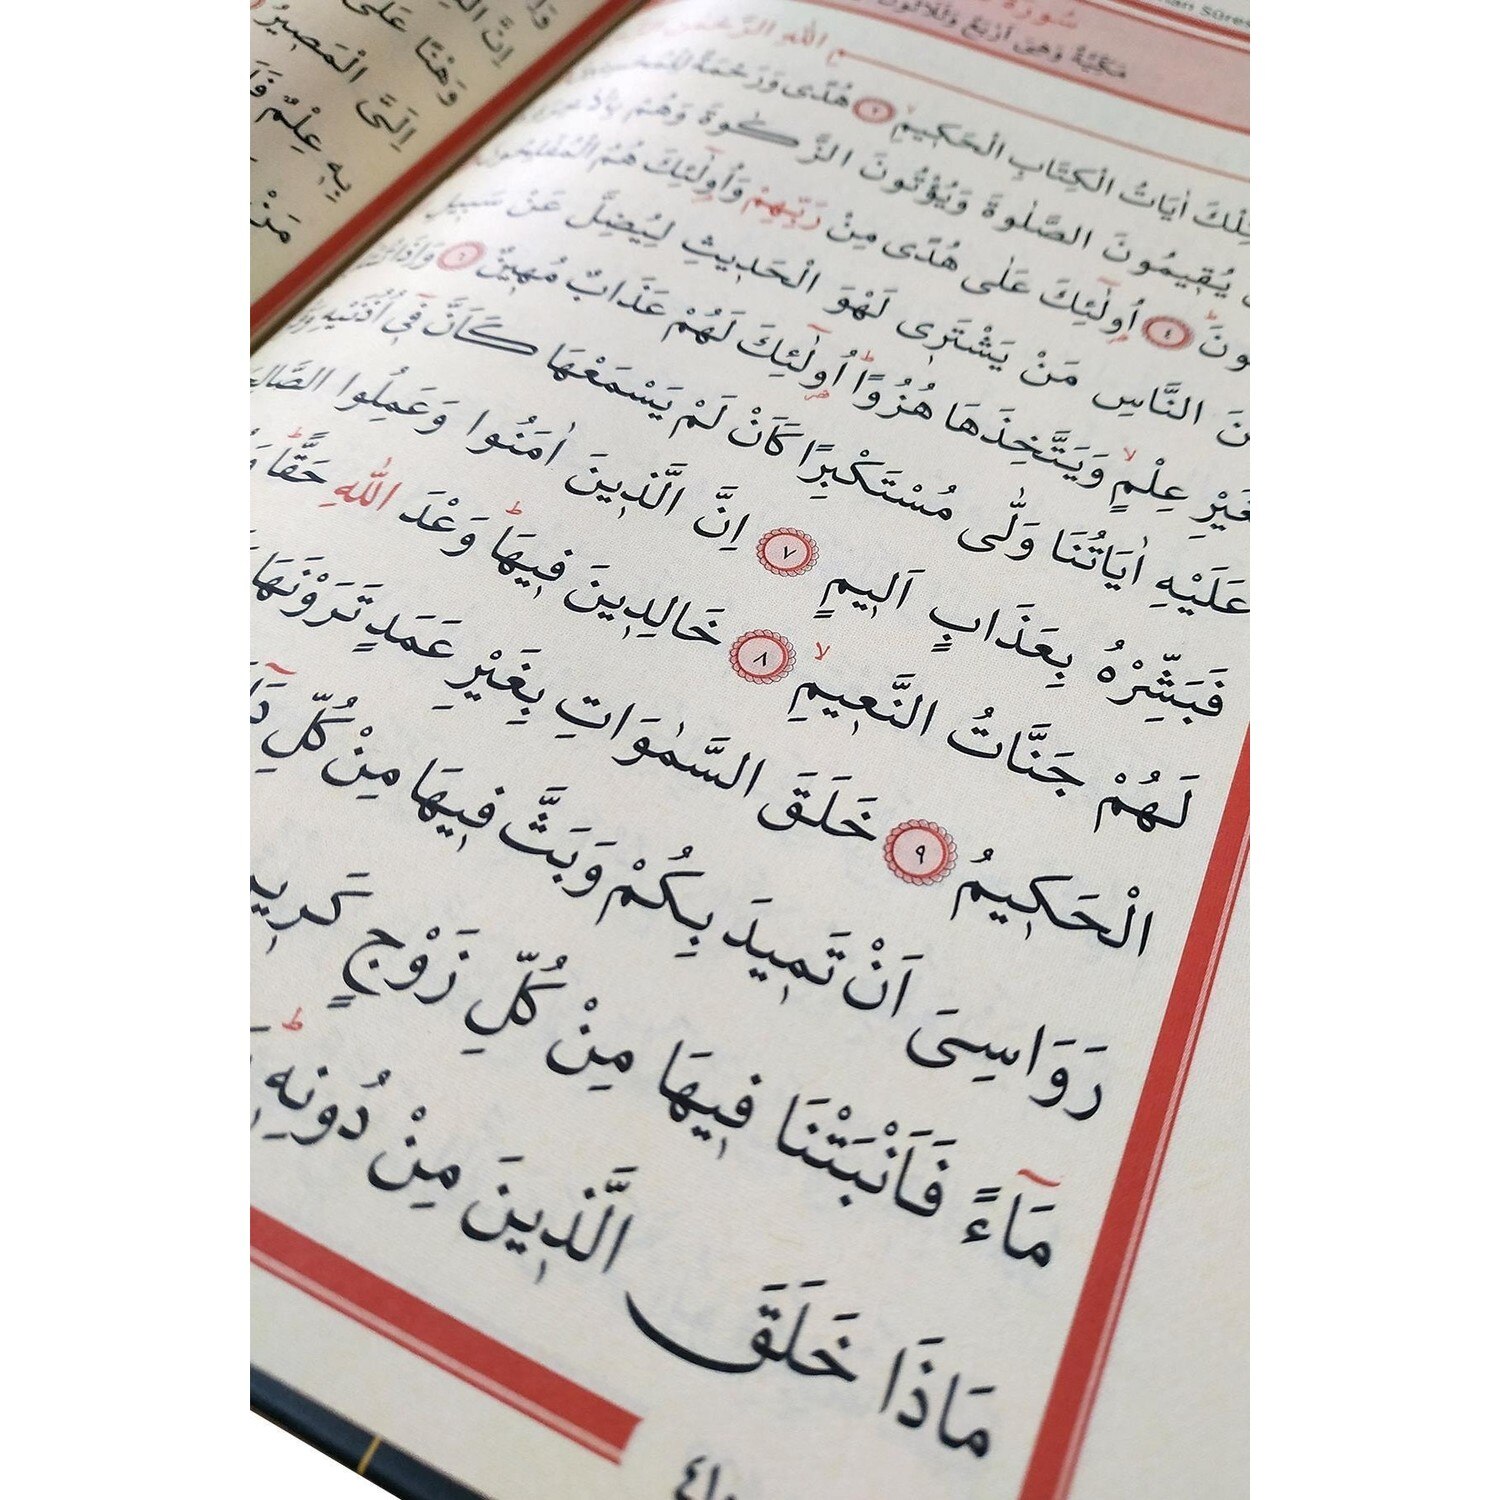 مَكِّيَّةٌ وَهِيَ اَرْبَعٌ وَثَلَاثُونَ
اللهِ الرَّحْمٰنِ
تِلْكَ اٰيَاتُ الْكِتَابِ الْحَكٖيمِۙ ﴿٢﴾ هُدًى وَرَحْمَةً
يُقٖيمُونَ الصَّلٰوةَ وَيُؤْتُونَ الزَّكٰوةَ وَهُمْ
﴿٤﴾ اُولٰٓئِكَ عَلٰى هُدًى مِنْ رَبِّهِمْ وَاُولٰٓئِكَ هُمُ الْمُفْلِحُونَ
النَّاسِ مَنْ يَشْتَرٖى لَهْوَ الْحَدٖيثِ لِيُضِلَّ عَنْ سَبٖيلِ
عِلْمٍۙ وَيَتَّخِذَهَا هُزُوًاۜ اُولٰٓئِكَ لَهُمْ عَذَابٌ مُهٖينٌ ﴿٦﴾
عَلَيْهِ اٰيَاتُنَا وَلّٰى مُسْتَكْبِرًا كَاَنْ لَمْ يَسْمَعْهَا كَاَنَّ فٖٓى اُذُنَيْهِ
فَبَشِّرْهُ بِعَذَابٍ اَلٖيمٍ ﴿٧﴾ اِنَّ الَّذٖينَ اٰمَنُوا وَعَمِلُوا
لَهُمْ جَنَّاتُ النَّعٖيمِۙ ﴿٨﴾ خَالِدٖينَ فٖيهَاۜ وَعْدَ اللهِ حَقًّاۜ
الْحَكٖيمُ ﴿٩﴾ خَلَقَ السَّمٰوَاتِ بِغَيْرِ عَمَدٍ تَرَوْنَهَا
رَوَاسِىَ اَنْ تَمٖيدَ بِكُمْ وَبَثَّ فٖيهَا مِنْ كُلِّ
مَٓاءً فَاَنْبَتْنَا فٖيهَا مِنْ كُلِّ زَوْجٍ
مَاذَا خَلَقَ الَّذٖينَ مِنْ دُونِهٖۜ
وَهْنًا عَلٰى
اِلَىَّ الْمَصٖيرُ
بِهٖ عِلْمٌ